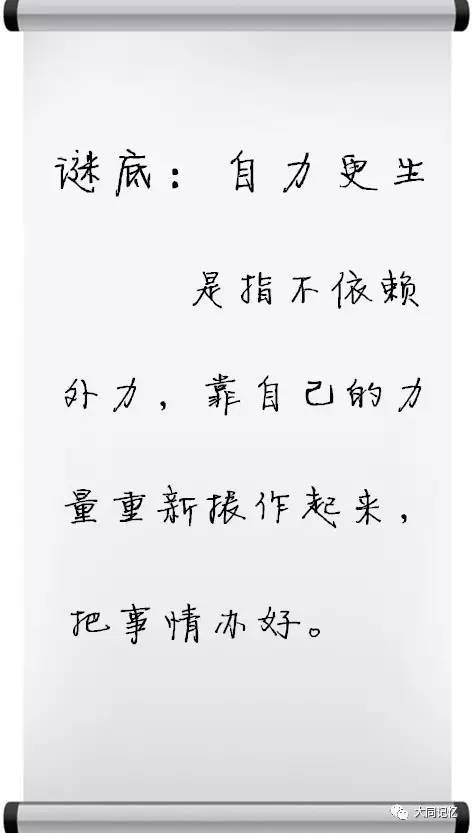 谜底：自力更生
是指不依赖
外力，靠自己的力
量重新振作起来，
把事情办好。
大同记忆